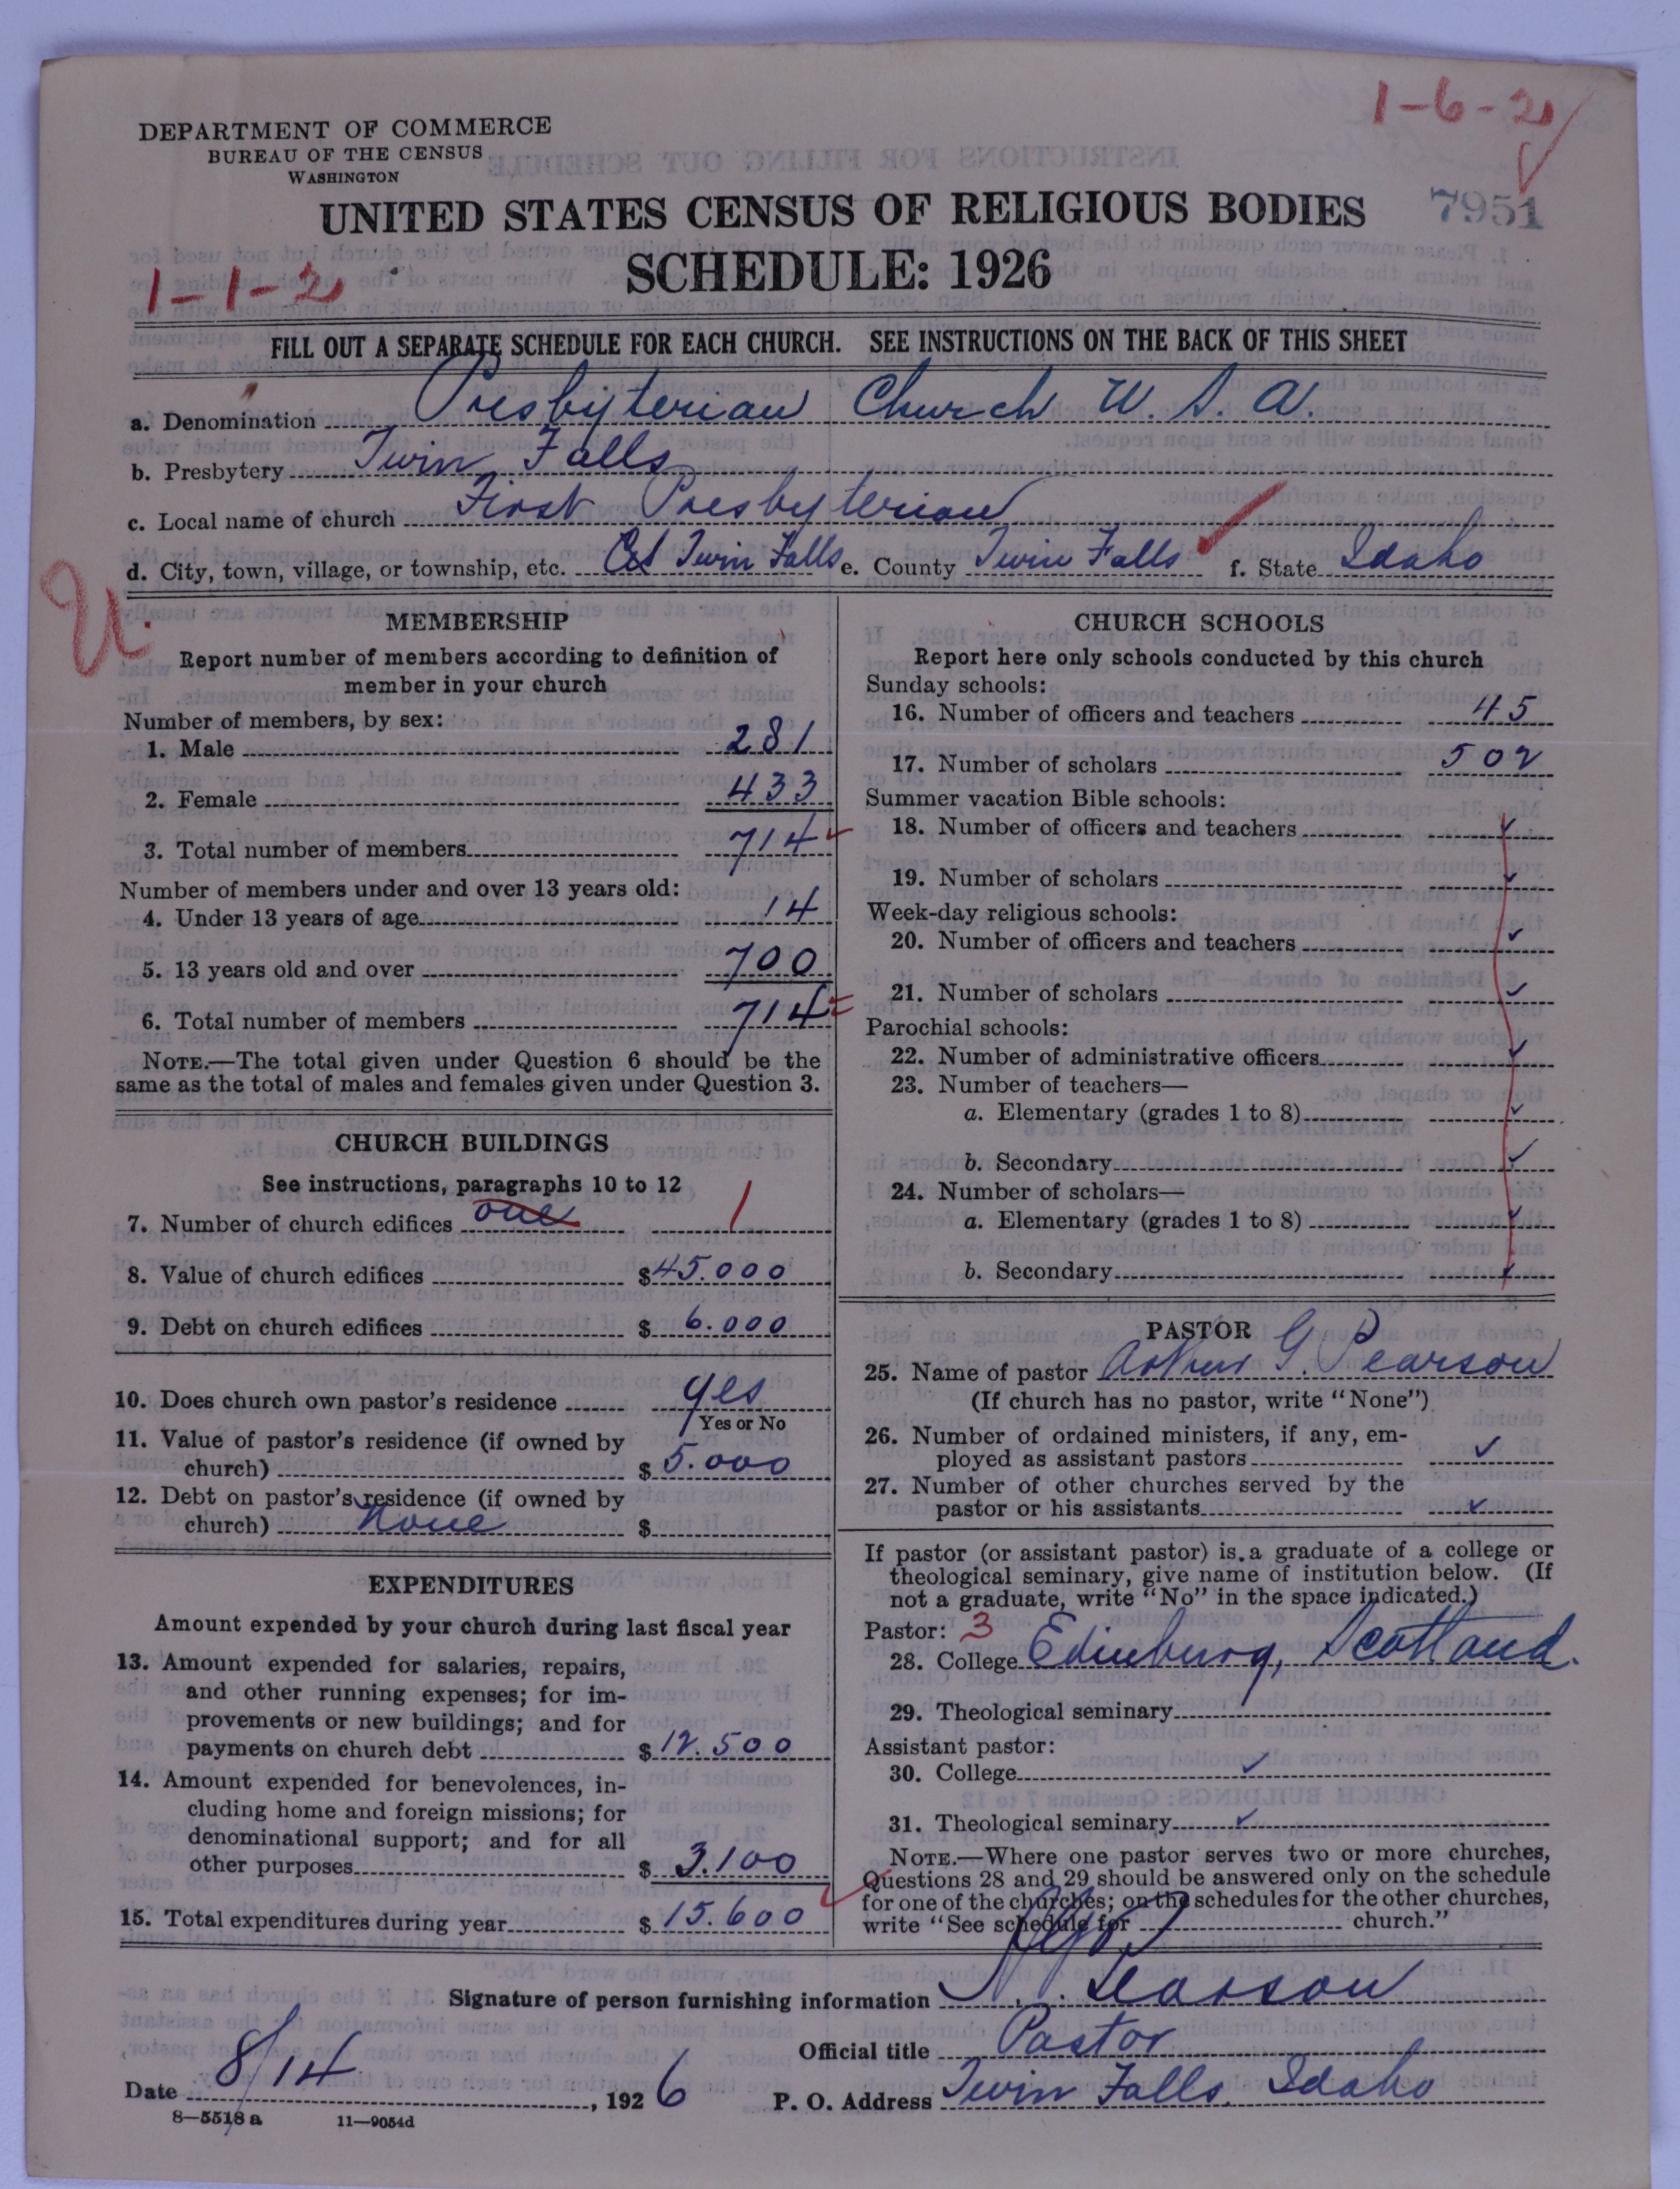 1-6-2
DEPARTMENT OF COMMERCE
BUREAU OF THE CENSUS
WASHINGTON
UNITED STATES CENSUS OF RELIGIOUS BODIES
7951
SCHEDULE: 1926
1-1-2
FILL OUT A SEPARATE SCHEDULE FOR EACH CHURCH. SEE INSTRUCTIONS ON THE BACK OF THIS SHEET
a. Denomination Presbyterian Church U. S. A.
b. Presbytery Twin Falls
c. Local name of church First Presbyterian
d. City, town, village, or township, etc. Twin Falls e. County Twin Falls f. State Idaho
U
MEMBERSHIP
Report number of members according to definition of
member in your church
Number of members, by sex:
1. Male 281
2. Female 433
3. Total number of members 714
Number of members under and over 13 years old:
4. Under 13 years of age 14
5. 13 years old and over 700
6. Total number of members 714
NOTE.—The total given under Question 6 should be the
same as the total of males and females given under Question 3.
CHURCH BUILDINGS
See instructions, paragraphs 10 to 12
7. Number of church edifices one 1
8. Value of church edifices $45.000
9. Debt on church edifices $ 6.000
10. Does church own pastor's residence yes
Yes or No
11. Value of pastor's residence (if owned by
church) $ 5.000
12. Debt on pastor's residence (if owned by
church) None $
EXPENDITURES
Amount expended by your church during last fiscal year
13. Amount expended for salaries, repairs,
and other running expenses; for im-
provements or new buildings; and for
payments on church debt $ 12.500
14. Amount expended for benevolences, in-
cluding home and foreign missions; for
denominational support; and for all
other purposes $ 3.100
15. Total expenditures during year $ 15.600
CHURCH SCHOOLS
Report here only schools conducted by this church
Sunday schools:
16. Number of officers and teachers 45
17. Number of scholars 502
Summer vacation Bible schools:
18. Number of officers and teachers
19. Number of scholars
Week-day religious schools:
20. Number of officers and teachers
21. Number of scholars
Parochial schools:
22. Number of administrative officers
23. Number of teachers—
a. Elementary (grades 1 to 8)
b. Secondary
24. Number of scholars—
a. Elementary (grades 1 to 8)
b. Secondary
PASTOR
25. Name of pastor Arthur G. Pearson
(If church has no pastor, write "None")
26. Number of ordained ministers, if any, em-
ployed as assistant pastors
27. Number of other churches served by the
pastor or his assistants
If pastor (or assistant pastor) is a graduate of a college or
theological seminary, give name of institution below. (If
not a graduate, write "No" in the space indicated.)
Pastor: 3
28. College Edinburg, Scotland.
29. Theological seminary
Assistant pastor:
30. College
31. Theological seminary
NOTE.—Where one pastor serves two or more churches,
Questions 28 and 29 should be answered only on the schedule
for one of the churches; on the schedules for the other churches,
write "See schedule for church."
Signature of person furnishing information Pearson
Official title Pastor
Date 8/14, 1926 P. O. Address Twin Falls, Idaho
8—5518 a 11—9054d